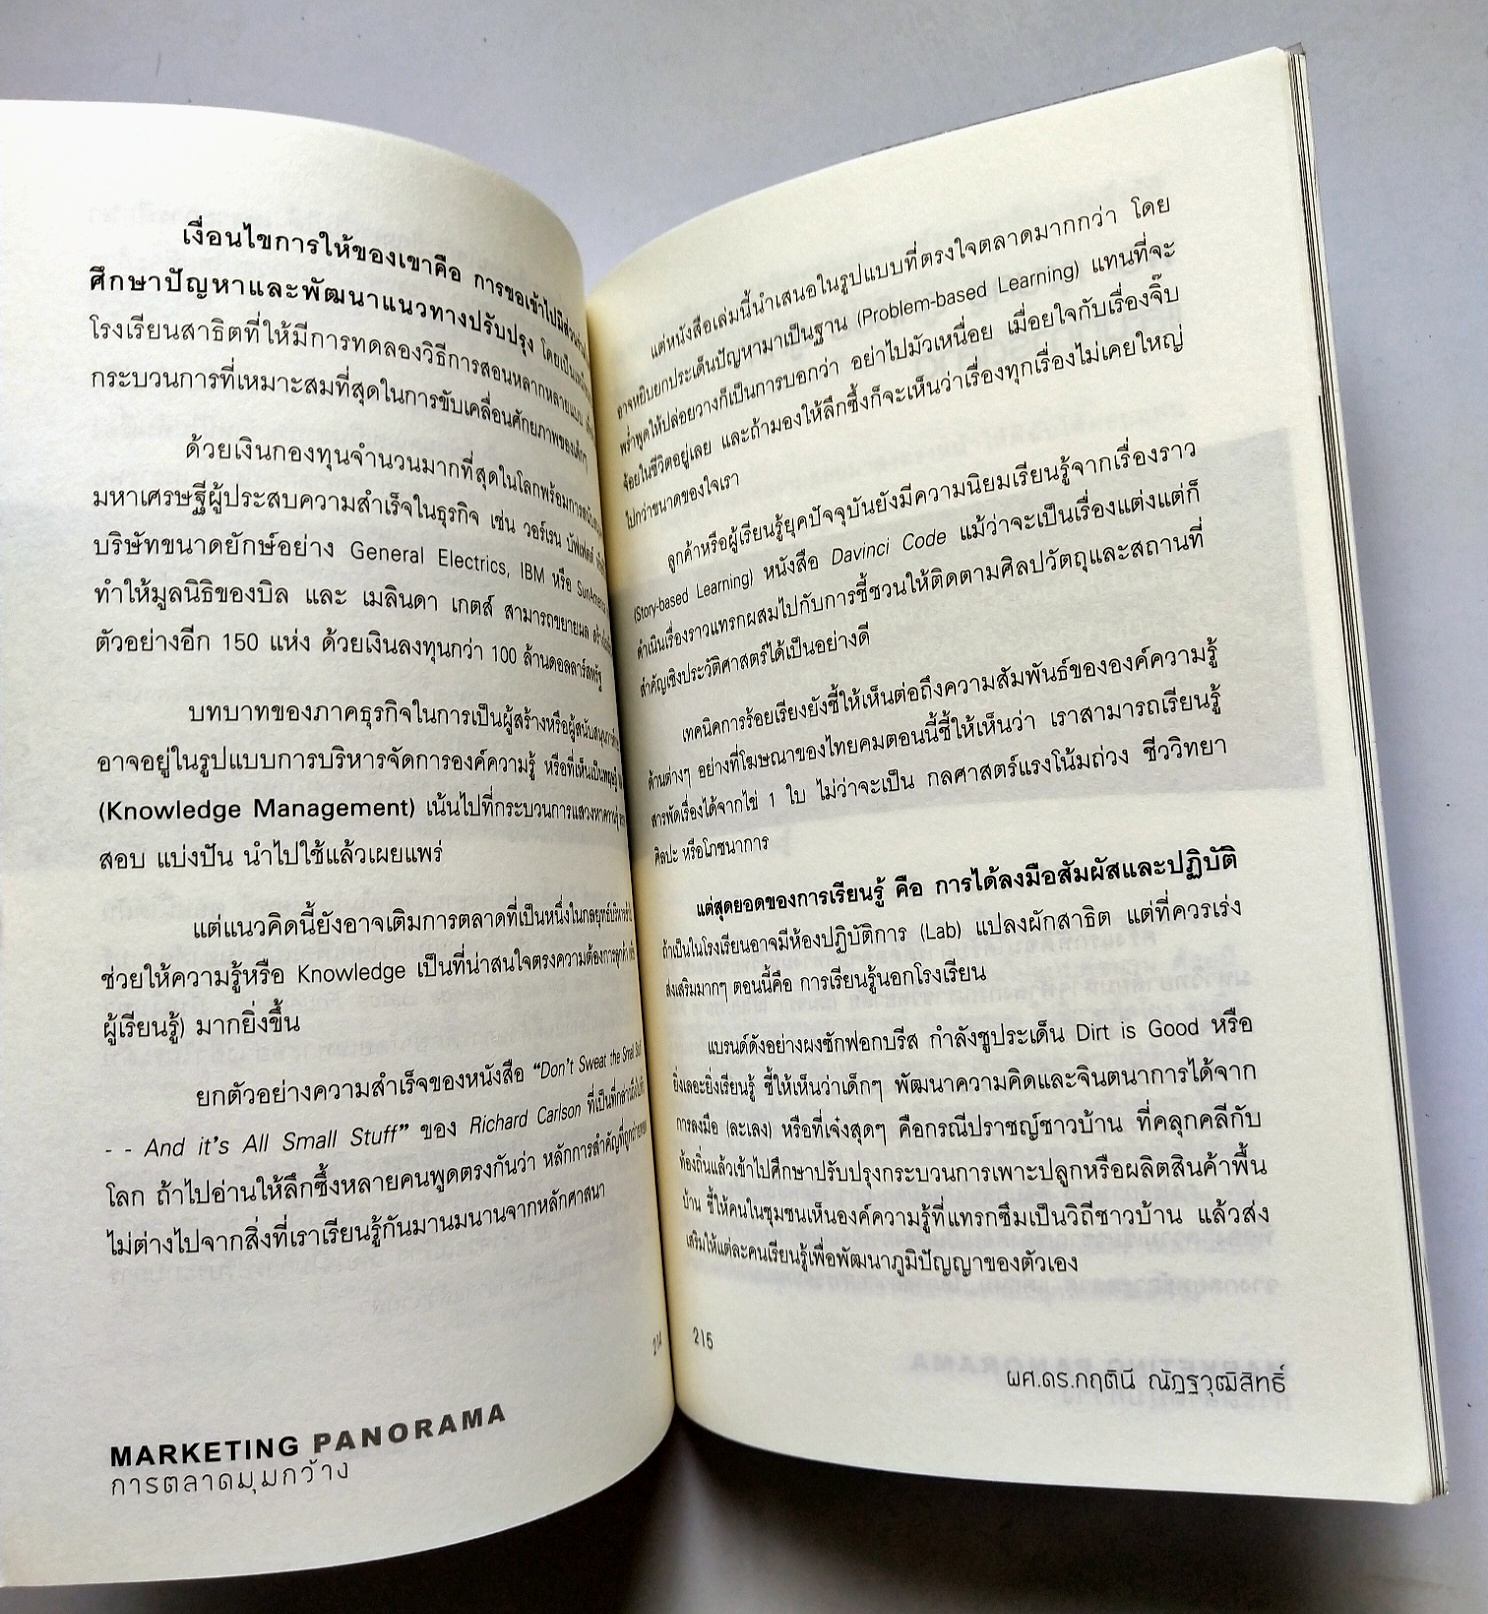 เงื่อนไขการให้ของเขาคือ การขอเข้าไปมีส่วนร่วม
ศึกษาปัญหาและพัฒนาแนวทางปรับปรุง โดยเป็น
โรงเรียนสาธิตที่ให้มีการทดลองวิธีการสอนหลากหลายแบบ
กระบวนการที่เหมาะสมที่สุดในการขับเคลื่อนศักยภาพของเด็กๆ
ด้วยเงินกองทุนจำนวนมากที่สุดในโลกพร้อมการสนับสนุน
มหาเศรษฐีผู้ประสบความสำเร็จในธุรกิจ เช่น วอร์เรน บัฟเฟตต์
บริษัทขนาดยักษ์อย่าง General Electrics, IBM หรือ SunAmerica
ทำให้มูลนิธิของบิล และ เมลินดา เกตส์ สามารถขยายผล
ตัวอย่างอีก 150 แห่ง ด้วยเงินลงทุนกว่า 100 ล้านดอลลาร์สหรัฐ
บทบาทของภาคธุรกิจในการเป็นผู้สร้างหรือผู้สนับสนุน
อาจอยู่ในรูปแบบการบริหารจัดการองค์ความรู้ หรือที่เห็นเป็นทฤษฎี
(Knowledge Management) เน้นไปที่กระบวนการแสวงหาความรู้
สอบ แบ่งปัน นำไปใช้แล้วเผยแพร่
แต่แนวคิดนี้ยังอาจเติมการตลาดที่เป็นหนึ่งในกลยุทธ์บริหาร
ช่วยให้ความรู้หรือ Knowledge เป็นที่น่าสนใจตรงความต้องการลูกค้า
ผู้เรียนรู้) มากยิ่งขึ้น
ยกตัวอย่างความสำเร็จของหนังสือ “Don't Sweat the Small Stuff
- - And it's All Small Stuff” ของ Richard Carlson ที่เป็นที่กล่าวถึงไปทั่ว
โลก ถ้าไปอ่านให้ลึกซึ้งหลายคนพูดตรงกันว่า หลักการสำคัญที่ถูกถ่ายทอด
ไม่ต่างไปจากสิ่งที่เราเรียนรู้กันมานมนานจากหลักศาสนา
214
MARKETING PANORAMA
การตลาดมุมกว้าง
แต่หนังสือเล่มนี้นำเสนอในรูปแบบที่ตรงใจตลาดมากกว่า โดย
อาจหยิบยกประเด็นปัญหามาเป็นฐาน (Problem-based Learning) แทนที่จะ
พร่ำพูดให้ปล่อยวางก็เป็นการบอกว่า อย่าไปมัวเหนื่อย เมื่อยใจกับเรื่องจิ๊บ
จ้อยในชีวิตอยู่เลย และถ้ามองให้ลึกซึ้งก็จะเห็นว่าเรื่องทุกเรื่องไม่เคยใหญ่
ไปกว่าขนาดของใจเรา
ลูกค้าหรือผู้เรียนรู้ยุคปัจจุบันยังมีความนิยมเรียนรู้จากเรื่องราว
(Story-based Learning) หนังสือ Davinci Code แม้ว่าจะเป็นเรื่องแต่งแต่ก็
ดำเนินเรื่องราวแทรกผสมไปกับการชี้ชวนให้ติดตามศิลปวัตถุและสถานที่
สำคัญเชิงประวัติศาสตร์ได้เป็นอย่างดี
เทคนิคการร้อยเรียงยังชี้ให้เห็นต่อถึงความสัมพันธ์ขององค์ความรู้
ด้านต่างๆ อย่างที่โฆษณาของไทยคมตอนนี้ชี้ให้เห็นว่า เราสามารถเรียนรู้
สารพัดเรื่องได้จากไข่ 1 ใบ ไม่ว่าจะเป็น กลศาสตร์แรงโน้มถ่วง ชีววิทยา
ศิลปะ หรือโภชนาการ
แต่สุดยอดของการเรียนรู้ คือ การได้ลงมือสัมผัสและปฏิบัติ
ถ้าเป็นในโรงเรียนอาจมีห้องปฏิบัติการ (Lab) แปลงผักสาธิต แต่ที่ควรเร่ง
ส่งเสริมมากๆ ตอนนี้คือ การเรียนรู้นอกโรงเรียน
แบรนด์ดังอย่างผงซักฟอกบรีส กำลังชูประเด็น Dirt is Good หรือ
ยิ่งเลอะยิ่งเรียนรู้ ชี้ให้เห็นว่าเด็กๆ พัฒนาความคิดและจินตนาการได้จาก
การลงมือ (ละเลง) หรือที่เจ๋งสุดๆ คือกรณีปราชญ์ชาวบ้าน ที่คลุกคลีกับ
ท้องถิ่นแล้วเข้าไปศึกษาปรับปรุงกระบวนการเพาะปลูกหรือผลิตสินค้าพื้น
บ้าน ชี้ให้คนในชุมชนเห็นองค์ความรู้ที่แทรกซึมเป็นวิถีชาวบ้าน แล้วส่ง
เสริมให้แต่ละคนเรียนรู้เพื่อพัฒนาภูมิปัญญาของตัวเอง
215
ผศ.ดร.กฤตินี ณัฏฐวุฒิสิทธิ์